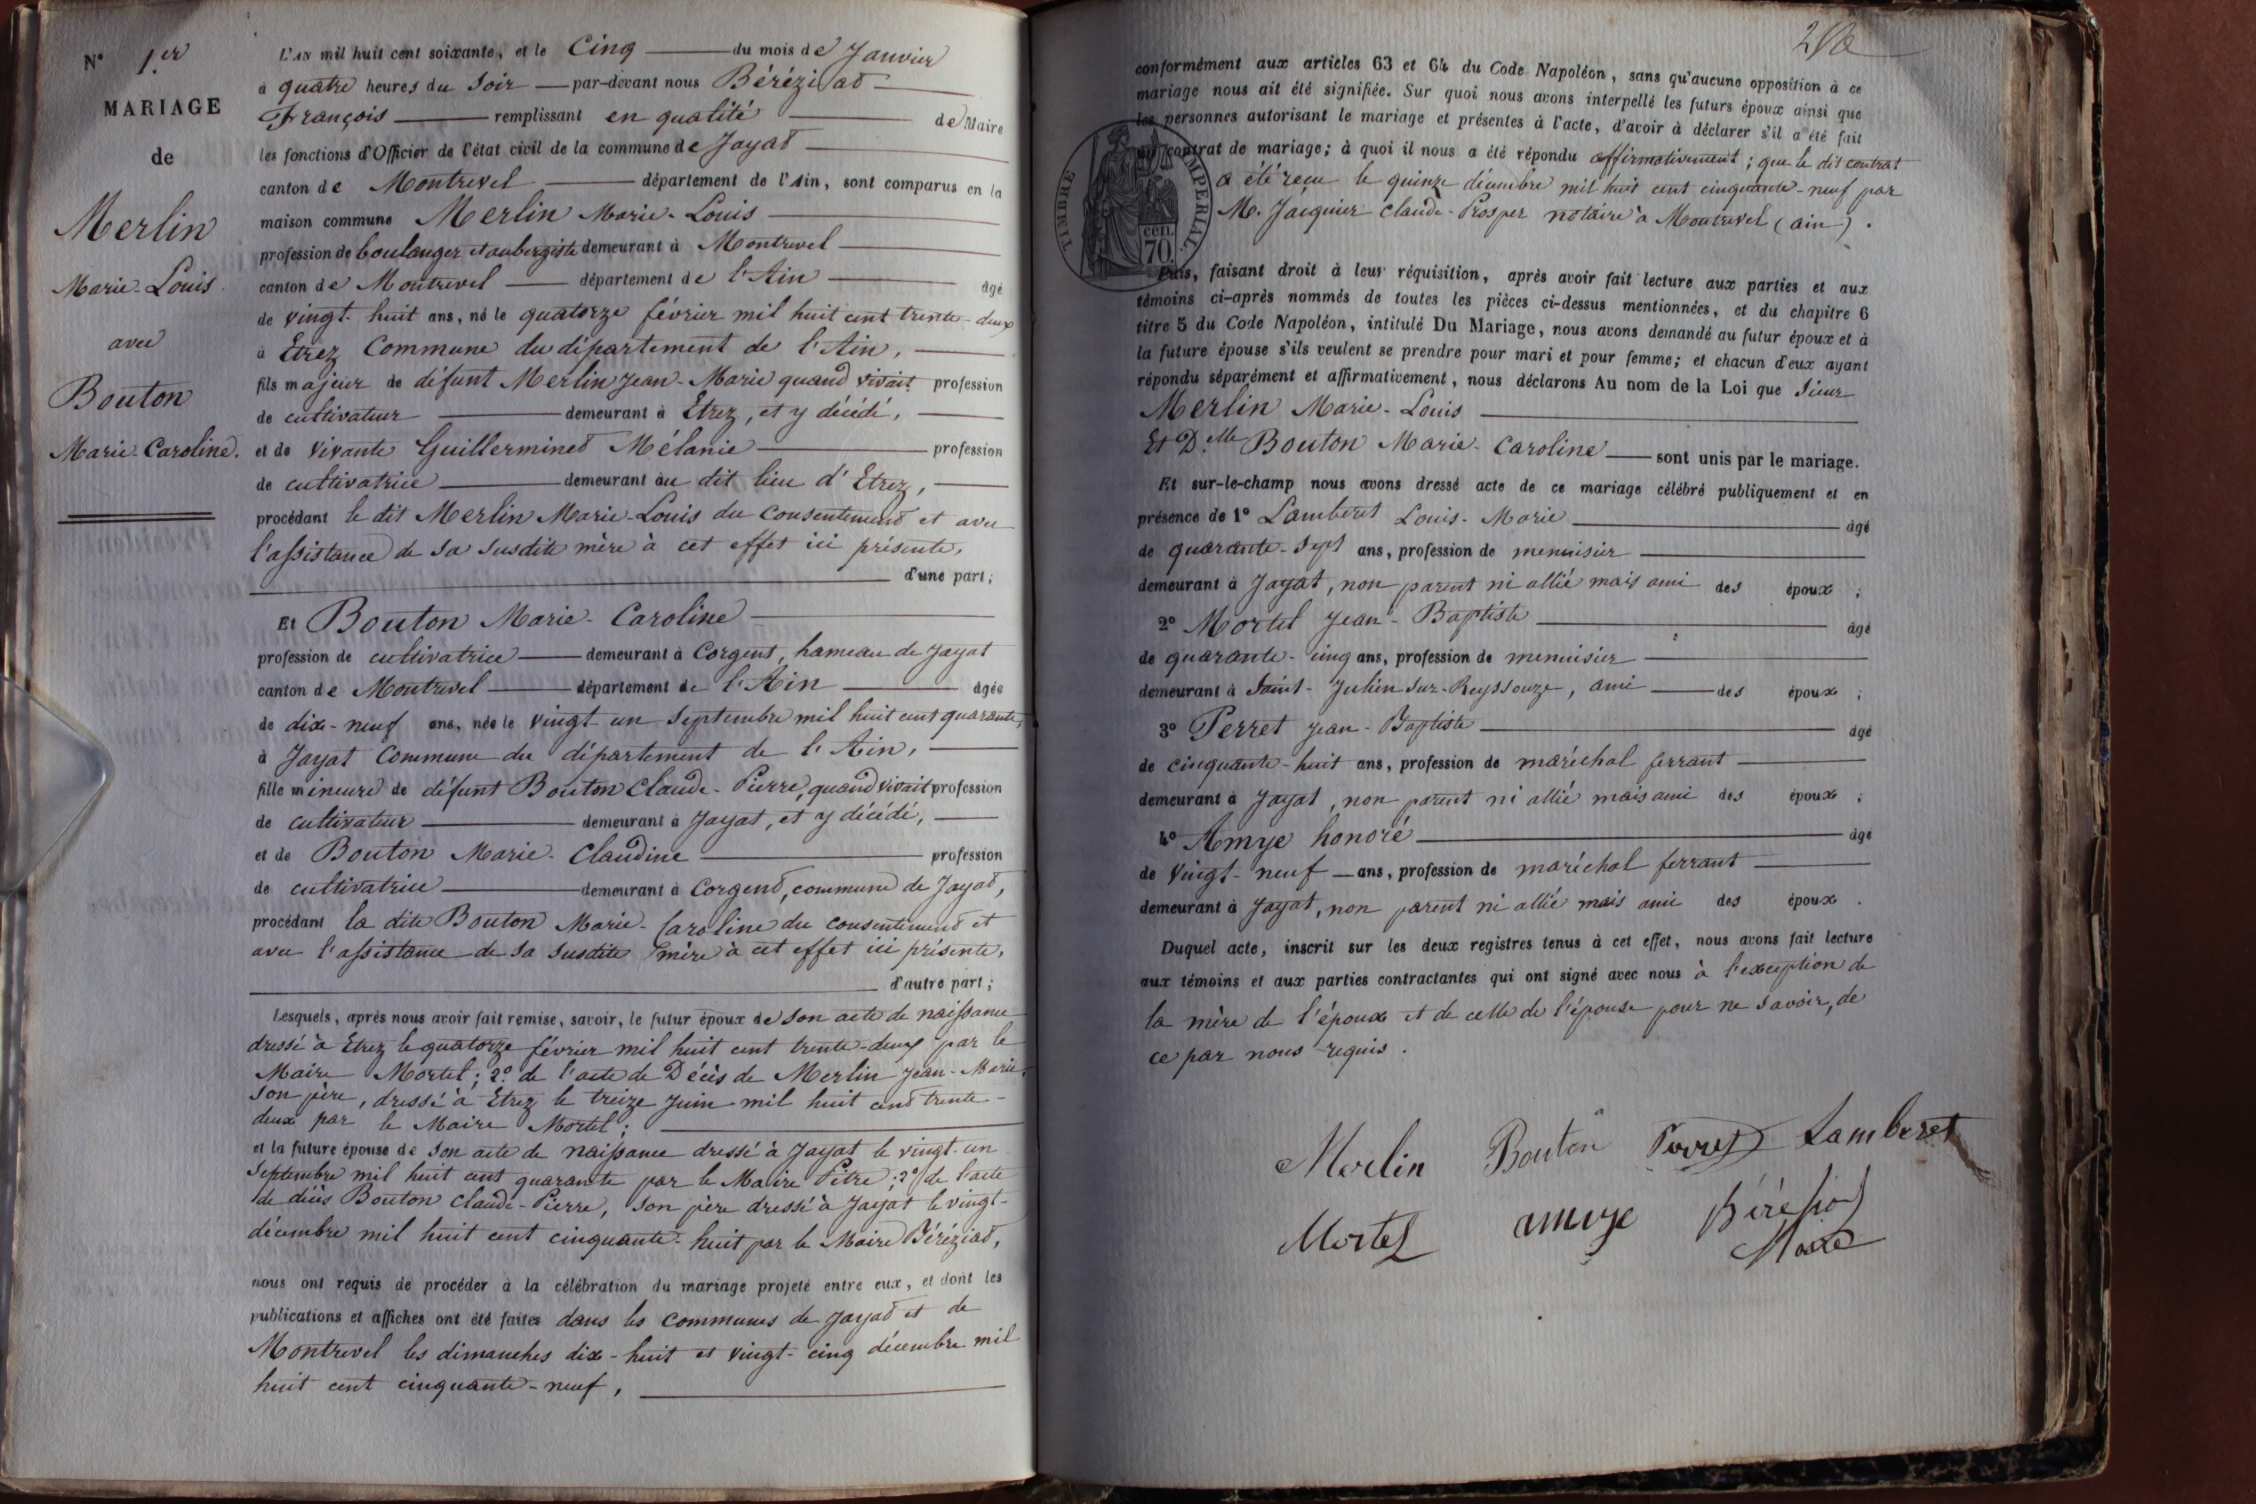 N° 1.er
MARIAGE
de
Merlin
Marie-Louis
avec
Bouton
Marie-Caroline.
L'AN mil huit cent soixante, et le Cinq du mois de Janvier
à quatre heures du Soir par-devant nous Béréziat
François remplissant en qualité de Maire
les fonctions d'Officier de l'état civil de la commune de Jayat
canton de Montrevel département de l'Ain, sont comparus en la
maison commune Merlin Marie-Louis
profession de boulanger et aubergiste demeurant à Montrevel
canton de Montrevel département de l'Ain âgé
de vingt-huit ans, né le quatorze février mil huit cent trente-deux
à Etrez Commune du département de l'Ain,
fils majeur de défunt Merlin Jean-Marie quand vivait profession
de cultivateur demeurant à Etrez, et y décédé,
et de vivante Guillerminet Mélanie profession
de cultivatrice demeurant au dit lieu d'Etrez,
procédant le dit Merlin Marie-Louis du consentement et avec
l'assistance de sa susdite mère à cet effet ici présente,
d'une part;
Et Bouton Marie-Caroline
profession de cultivatrice demeurant à Corgent, hameau de Jayat
canton de Montrevel département de l'Ain âgée
de dix-neuf ans, née le vingt-un Septembre mil huit cent quarante,
à Jayat Commune du département de l'Ain,
fille mineure de défunt Bouton Claude-Pierre, quand vivait profession
de cultivateur demeurant à Jayat, et y décédé,
et de Bouton Marie-Claudine profession
de cultivatrice demeurant à Corgent, commune de Jayat,
procédant la dite Bouton Marie-Caroline du consentement et
avec l'assistance de sa susdite mère à cet effet ici présente,
d'autre part;
Lesquels, après nous avoir fait remise, savoir, le futur époux de son acte de naissance
dressé à Etrez le quatorze février mil huit cent trente-deux par le
Maire Mortel; 2° de l'acte de Décès de Merlin Jean-Marie
son père, dressé à Etrez le treize Juin mil huit cent trente-
deux par le Maire Mortel;
et la future épouse de son acte de naissance dressé à Jayat le vingt-un
Septembre mil huit cent quarante par le Maire Pitre; 2° de l'acte
de décès Bouton Claude-Pierre, son père dressé à Jayat le vingt-
décembre mil huit cent cinquante-huit par le Maire Béréziat,
nous ont requis de procéder à la célébration du mariage projeté entre eux, et dont les
publications et affiches ont été faites dans les communes de Jayat et de
Montrevel les dimanches dix-huit et vingt-cinq décembre mil
huit cent cinquante-neuf,
conformément aux articles 63 et 64 du Code Napoléon, sans qu'aucune opposition à ce
mariage nous ait été signifiée. Sur quoi nous avons interpellé les futurs époux ainsi que
les personnes autorisant le mariage et présentes à l'acte, d'avoir à déclarer s'il a été fait
un contrat de mariage; à quoi il nous a été répondu affirmativement; que le dit contrat
a été reçu le quinze décembre mil huit cent cinquante-neuf par
M. Jacquier Claude-Prosper notaire à Montrevel (ain).
TIMBRE IMPERIAL
cen.
70.
Puis, faisant droit à leur réquisition, après avoir fait lecture aux parties et aux
témoins ci-après nommés de toutes les pièces ci-dessus mentionnées, et du chapitre 6
titre 5 du Code Napoléon, intitulé Du Mariage, nous avons demandé au futur époux et à
la future épouse s'ils veulent se prendre pour mari et pour femme; et chacun d'eux ayant
répondu séparément et affirmativement, nous déclarons Au nom de la Loi que Sieur
Merlin Marie-Louis
Et D.elle Bouton Marie-Caroline sont unis par le mariage.
Et sur-le-champ nous avons dressé acte de ce mariage célébré publiquement et en
présence de 1° Lamberet Louis-Marie âgé
de quarante-sept ans, profession de menuisier
demeurant à Jayat, non parent ni allié mais ami des époux ;
2° Mortel Jean-Baptiste âgé
de quarante-cinq ans, profession de menuisier
demeurant à Saint-Julien sur-Reyssouze, ami des époux ;
3° Perret Jean-Baptiste âgé
de cinquante-huit ans, profession de maréchal ferrant
demeurant à Jayat, non parent ni allié mais ami des époux ;
4° Amye honoré âgé
de vingt-neuf ans, profession de maréchal ferrant
demeurant à Jayat, non parent ni allié mais ami des époux .
Duquel acte, inscrit sur les deux registres tenus à cet effet, nous avons fait lecture
aux témoins et aux parties contractantes qui ont signé avec nous à l'exception de
la mère de l'époux et de celle de l'épouse pour ne savoir, de
ce par nous requis.
Merlin Bouton Perret Lamberet
Mortel amye Béréziat
Maire